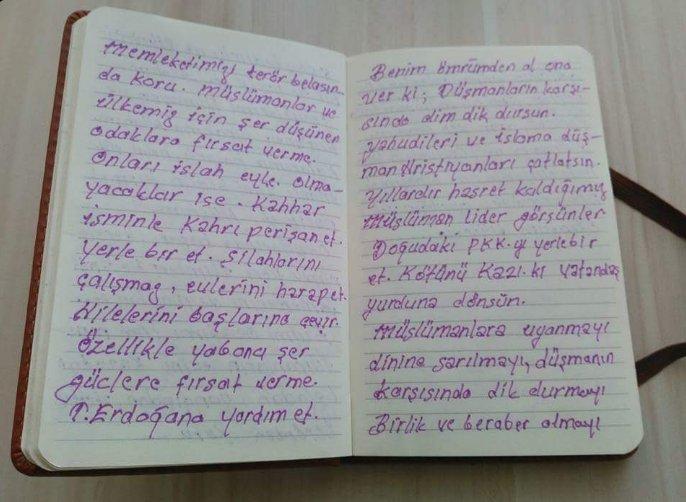 memleketimizi terör belasın-
da koru. Müslümanlar ve
ülkemiz için şer düşünen
odaklara fırsat verme.
onları islah eyle. olma-
yacaklar ise. Kahhar
isminle kahrı perişan et.
yerle bir et. silahlarını
çalışmaz, evlerini harap et.
hilelerini başlarına çevir.
Özellikle yabancı şer
güçlere fırsat verme.
T.Erdoğana yardım et.
Benim ömrümden al ona
ver ki; Düşmanların karşı-
sında dim dik dursun.
yahudileri ve islama düş-
man Hristiyanları çatlatsın.
yıllardır hasret kaldığımız
Müslüman lider görsünler
Doğudaki PKK.yı yerlebir
et. Kökünü Kazı.ki vatandaş
yurduna dönsün.
Müslümanlara uyanmayı
dinine sarılmayı, düşmanın
karşısında dik durmayı
Birlik ve beraber olmayı